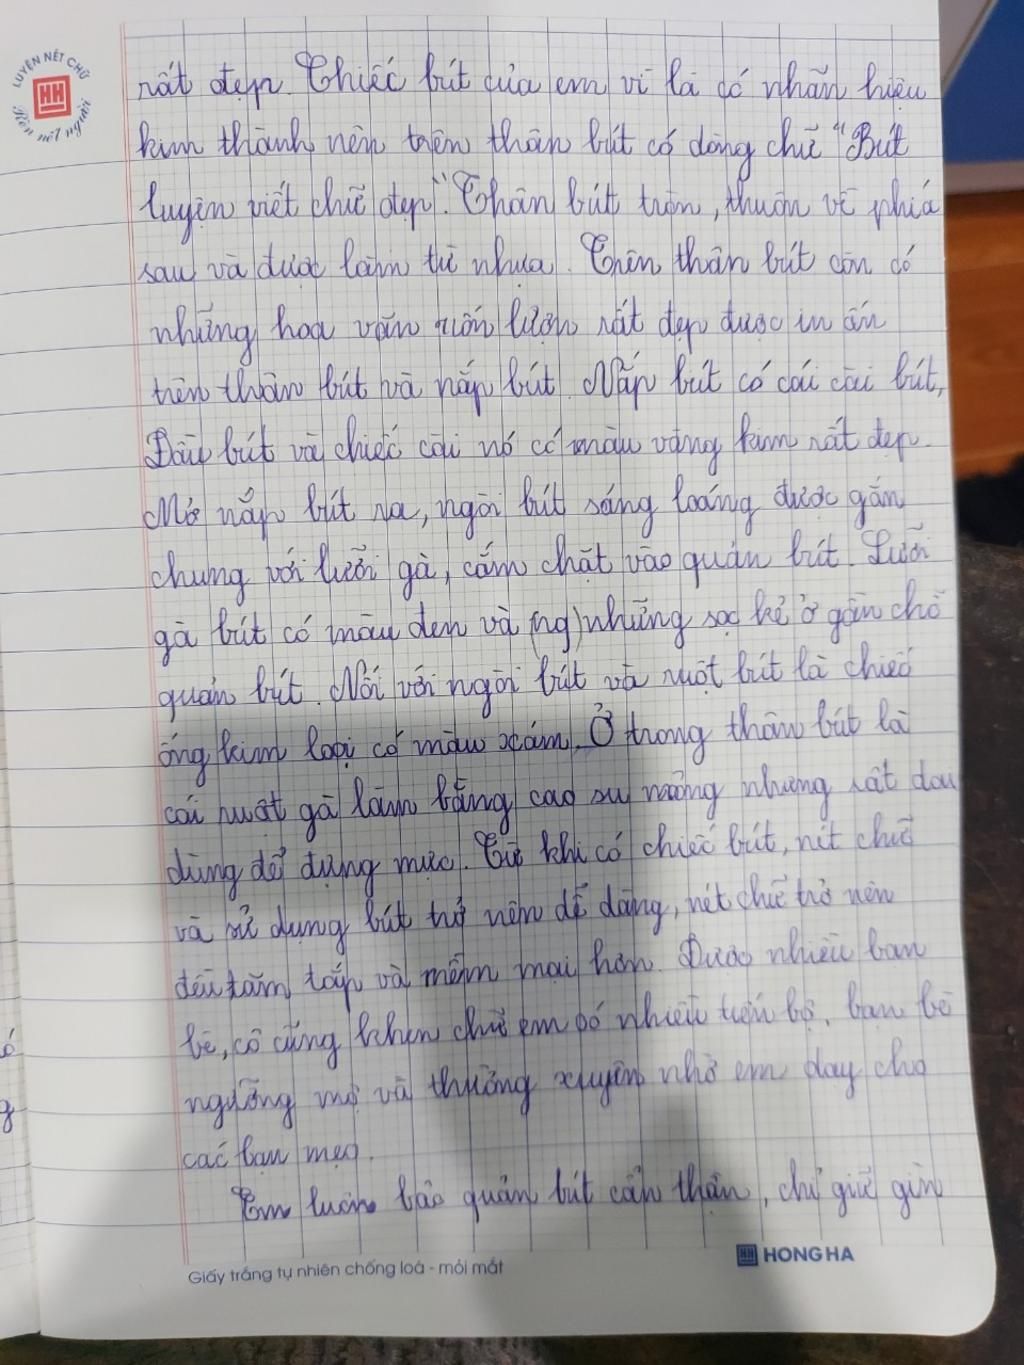 LUYỆN NẾT CHỮ
HH
Rèn nết người
rất đẹp. Chiếc bút của em vì là có nhãn hiệu
kim thành nên trên thân bút có dòng chữ "Bút
luyện viết chữ đẹp". Thân bút tròn, thuôn về phía
sau và được làm từ nhựa. Trên thân bút còn có
những hoa văn uốn lượn rất đẹp được in ấn
trên thân bút và nắp bút. Nắp bút có cái cài bút,
Đầu bút và chiếc cài nó có màu vàng kim rất đẹp.
Mở nắp bút ra, ngòi bút sáng loáng được gắn
chung với lưỡi gà, cắm chặt vào quản bút. Lưỡi
gà bút có màu đen và (ng) những sọc kẻ ở gần chỗ
quản bút. Nối với ngòi bút và ruột bút là chiếc
ống kim loại có màu xám. Ở trong thân bút là
cái ruột gà làm bằng cao su mỏng nhưng rất dai
dùng để đựng mực. Từ khi có chiếc bút, nét chữ
và sử dụng bút trở nên dễ dàng, nét chữ trở nên
đều tăm tắp và mềm mại hơn. Được nhiều bạn
bè, cô cũng khen chữ em có nhiều tiến bộ, bạn bè
ngưỡng mộ và thường xuyên nhờ em dạy cho
các bạn mẹo.
Em luôn bảo quản bút cẩn thận, chỉ giữ gìn
Giấy trắng tự nhiên chống loá - mỏi mắt
HH HONG HA